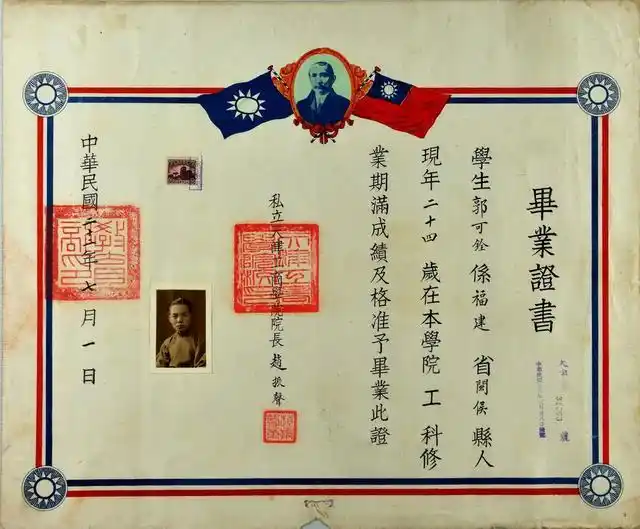 畢業證書
學生郭可銓係福建省閩侯縣人
現年二十四歲在本學院工科修
業期滿成績及格准予畢業此證
私立天津工商學院院長趙振聲
中華民國二十二年七月一日
教育部印